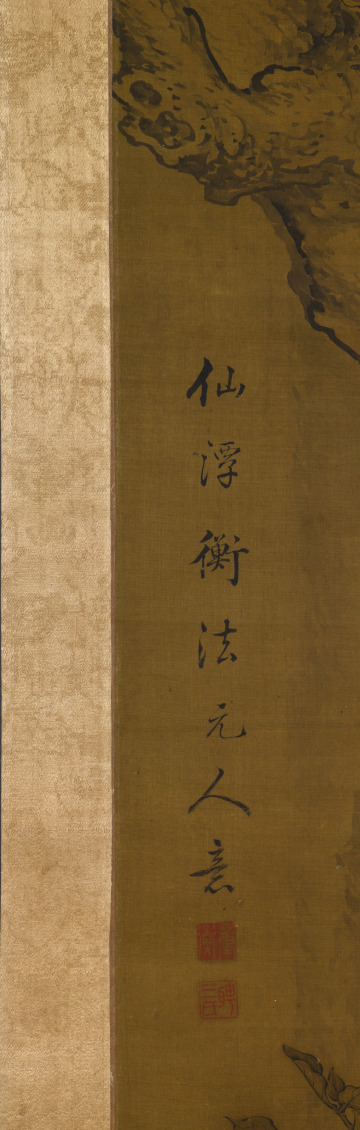 仙潭衡法元人意